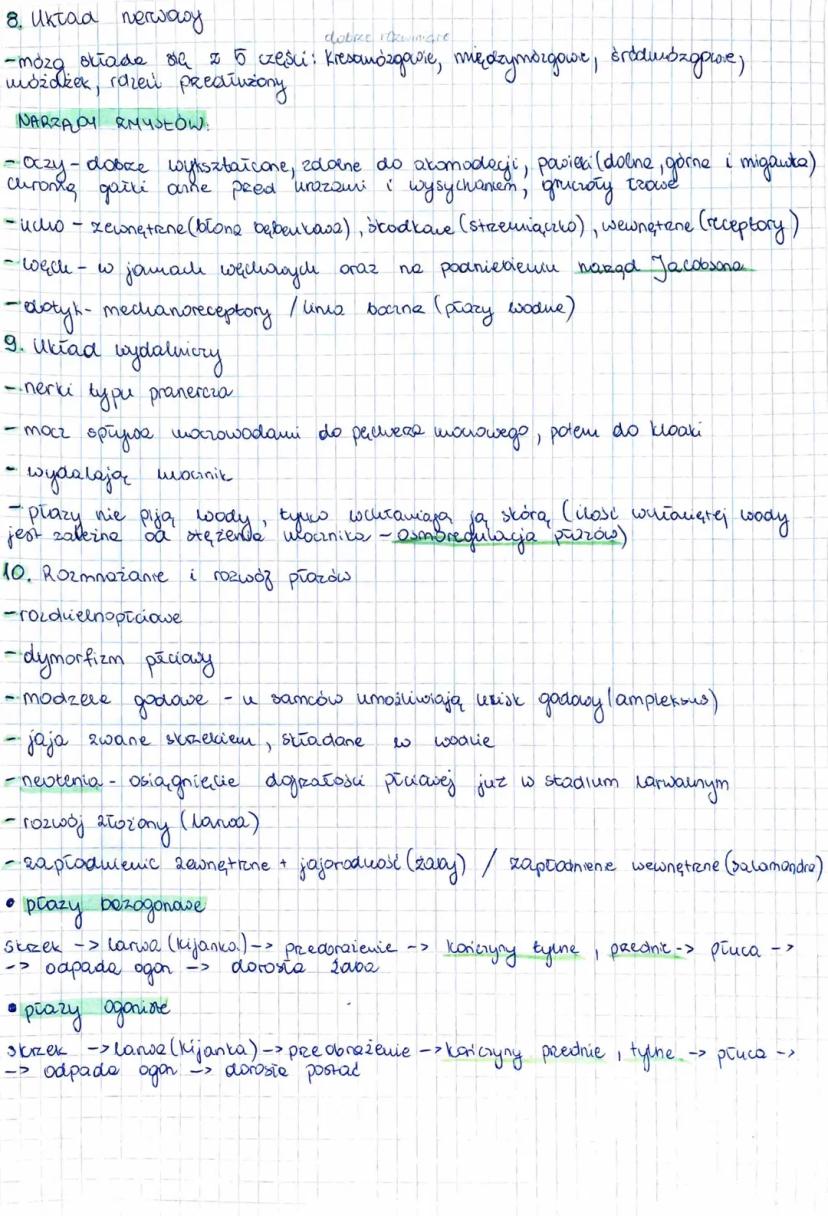 8. Układ nerwowy
dobrze rozwinięte
-mózg składa się z 5 części: kresomózgowie, międzymózgowie, śródmózgowie,
móżdżek, rdzeń przedłużony
NARZĄDY ZMYSŁÓW:
- oczy - dobrze wykształcone, zdolne do akomodacji, powieki (dolna, górna i migawka)
chronią gałki oczne przed urazami i wysychaniem, gruczoły łzowe
- ucho - zewnętrzne (błona bębenkowa), środkowe (strzemiączko), wewnętrzne (receptory)
- węch - w jamach węchowych oraz na podniebieniu narząd Jacobsona
- dotyk - mechanoreceptory / linia boczna (płazy wodne)
9. Układ wydalniczy
- nerki typu pranercza
- mocz spływa moczowodami do pęcherza moczowego, potem do kloaki
- wydalają mocznik
- płazy nie piją wody, tylko wchłaniają ją skórą (ilość wchłaniętej wody
jest zależna od stężenia mocznika - osmoregulacja płazów)
10. Rozmnażanie i rozwój płazów
- rozdzielnopłciowe
- dymorfizm płciowy
- modzele godowe - u samców umożliwiają uścisk godowy (ampleksus)
- jaja zwane skrzekiem, składane w wodzie
- neotenia - osiągnięcie dojrzałości płciowej już w stadium larwalnym
- rozwój złożony (larwa)
- zapłodnienie zewnętrzne + jajorodność (żaby) / zapłodnienie wewnętrzne (salamandra)
• płazy bezogonowe
skrzek -> larwa (kijanka) -> przeobrażenie -> kończyny tylne, przednie -> płuca ->
-> odpada ogon -> dorosła żaba
• płazy ogoniaste
skrzek -> larwa (kijanka) -> przeobrażenie -> kończyny przednie, tylne -> płuca ->
-> odpada ogon -> dorosła postać